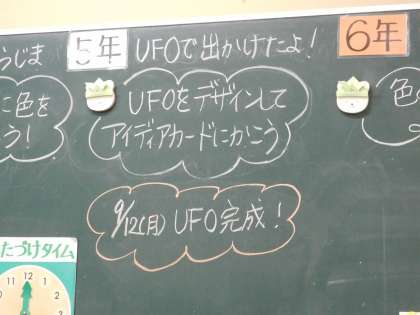 うじま
5年 UFOで出かけたよ!
6年
に色を
う!
UFOをデザインして
アイディアカードにかこう
色
9/12(月) UFO完成!
たづけタイム
11 12 1
10 2
9 3